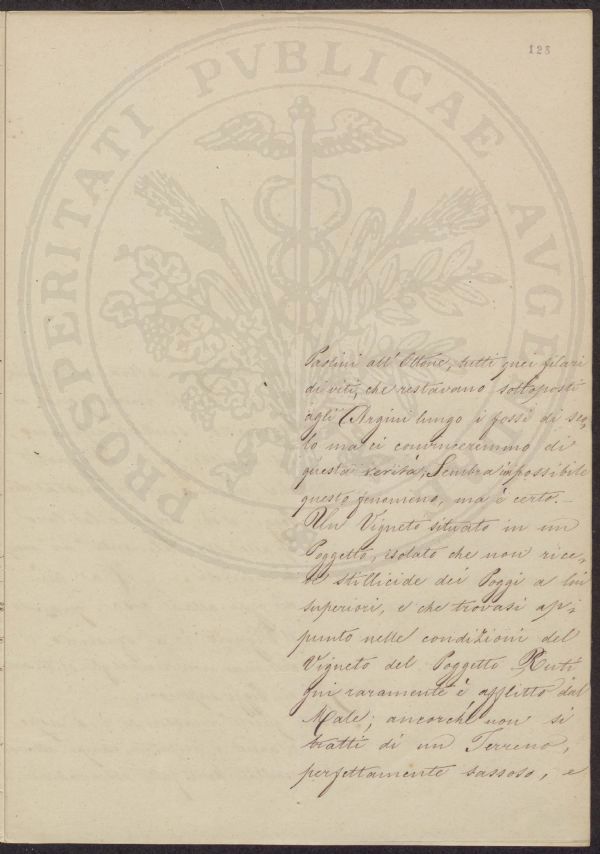 123
PROSPERITATI PVBLICAE AVGENDAE
Paolini all' Ottone, tutti quei filari
di viti, che restavano sottoposti
agli Argini lungo i fossi di sco-
lo ma ci convinceremmo di
questa verità, Sembra impossibile
questo fenomeno, ma è certo._
Un Vigneto situato in un
Poggetto, isolato che non rice-
ve stillicide dei Poggi a lui
superiori, e che trovasi ap-
punto nelle condizioni del
Vigneto del Poggetto
qui raramente è afflitto dal
Male; ancorché non si
tratti di un Terreno,
perfettamente sassoso, e